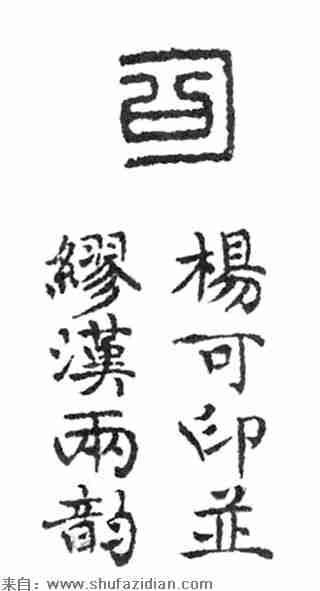 可
楊可印並
繆漢兩韵
来自：www.shufazidian.com